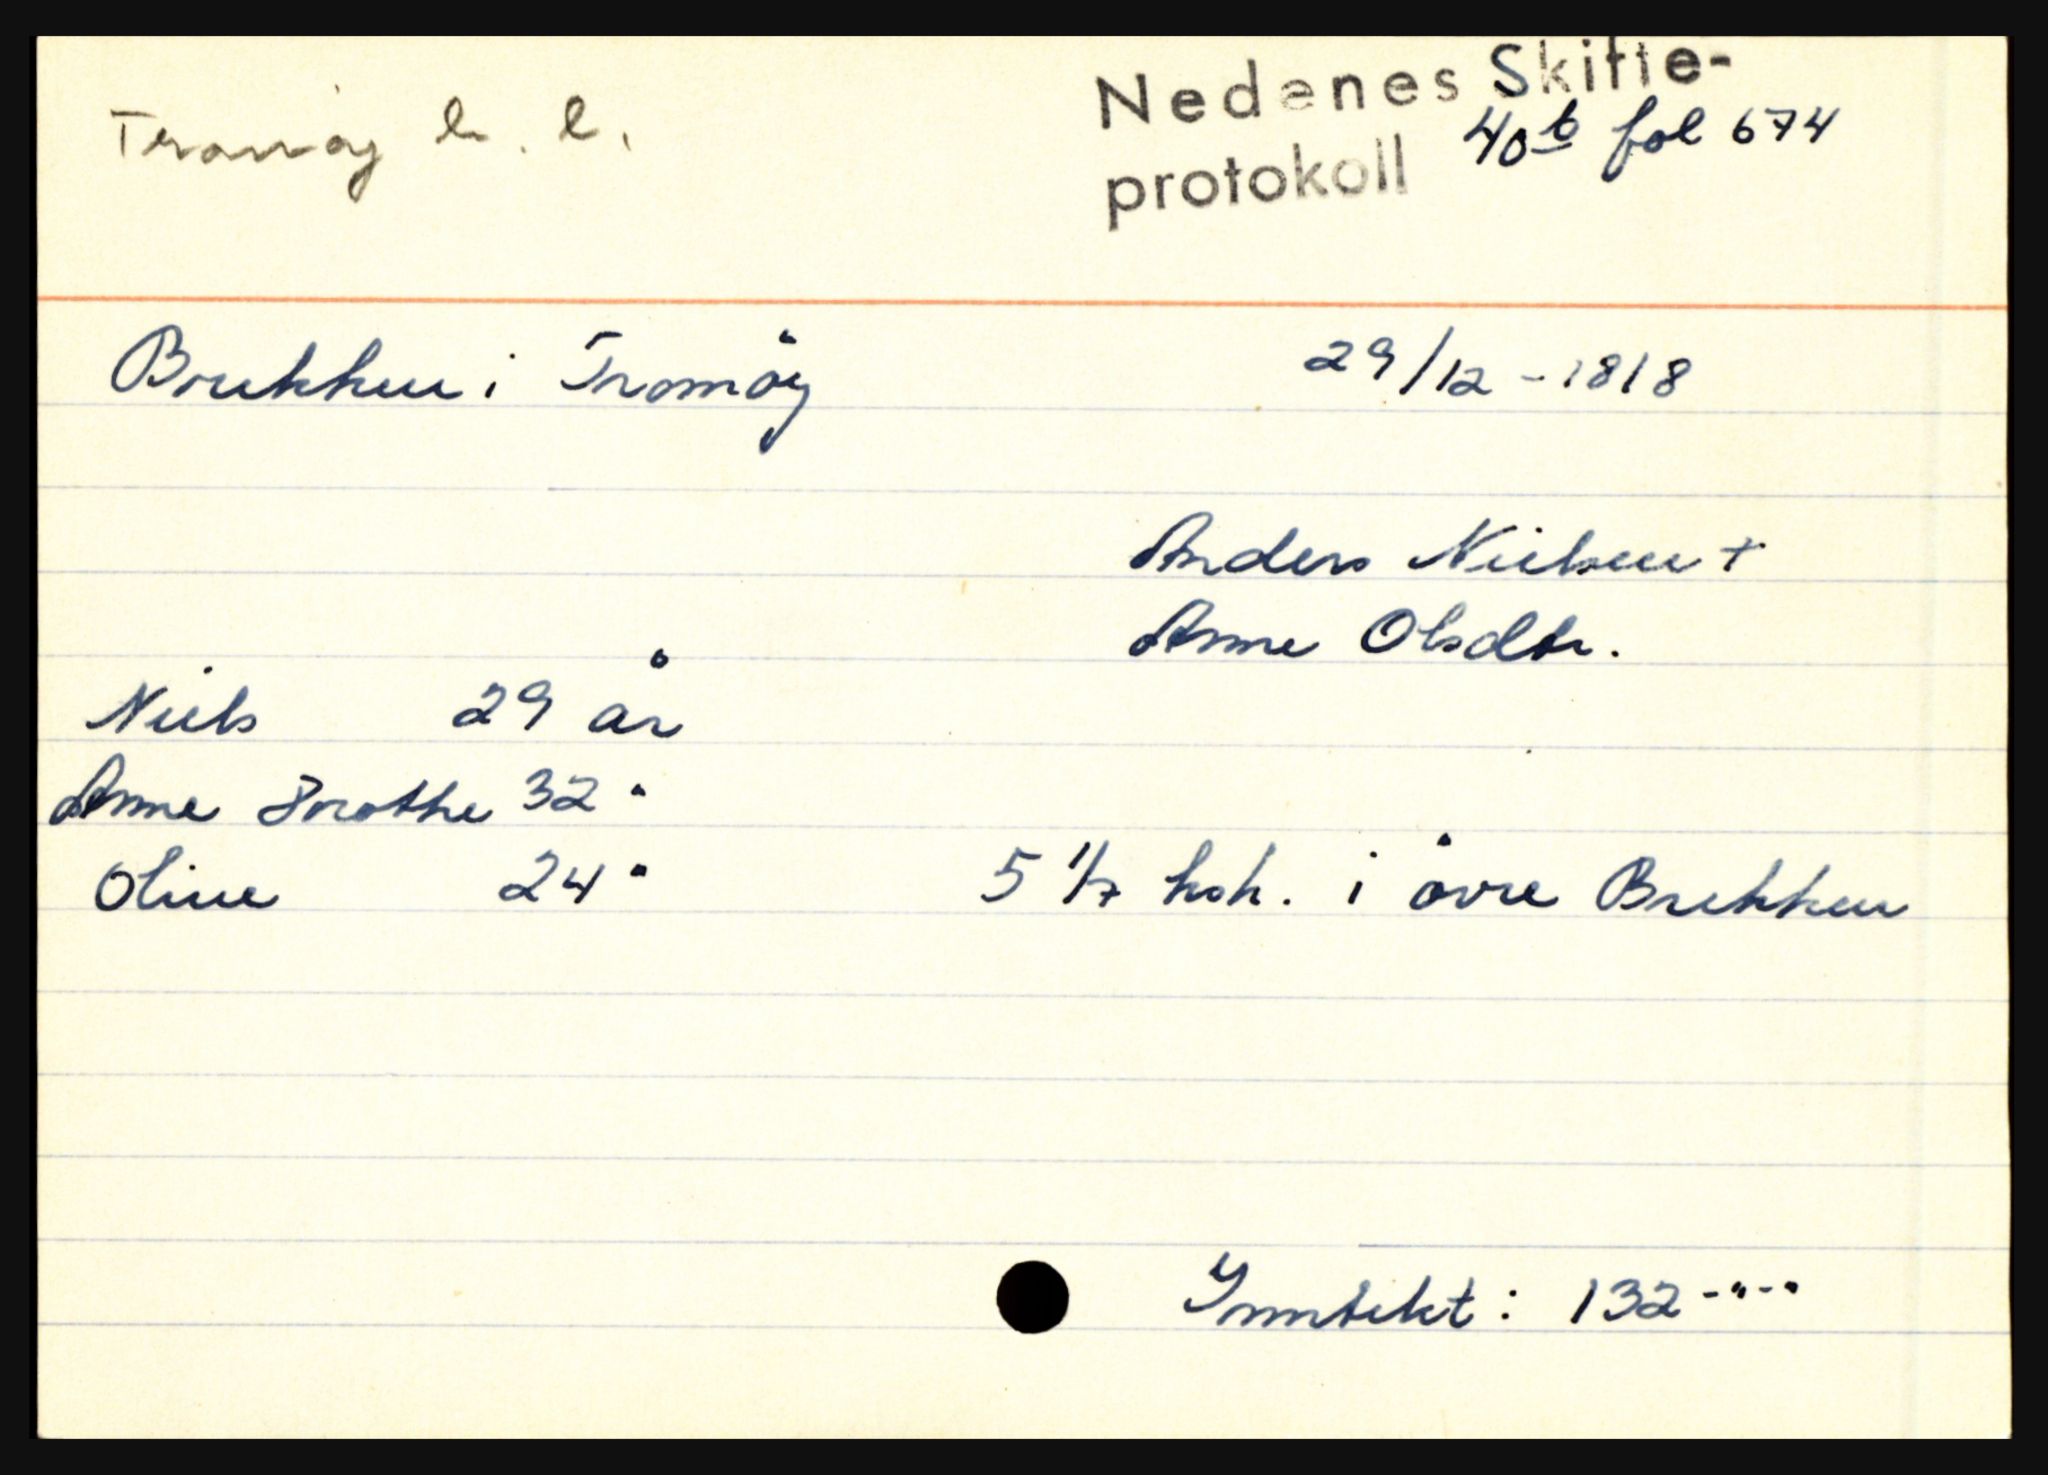 Tromøy l. l.
Nedenes Skifte-
protokoll 40b fol 674
Brekken i Tromöy 29/12 - 1818
Anders Nielsen +
Anne Olsdtr.
Niels 29 år
Anne Dorothe 32 "
Oline 24 " 5 1/7 ksk. i övre Brekken
Inntekt: 132 - " - "